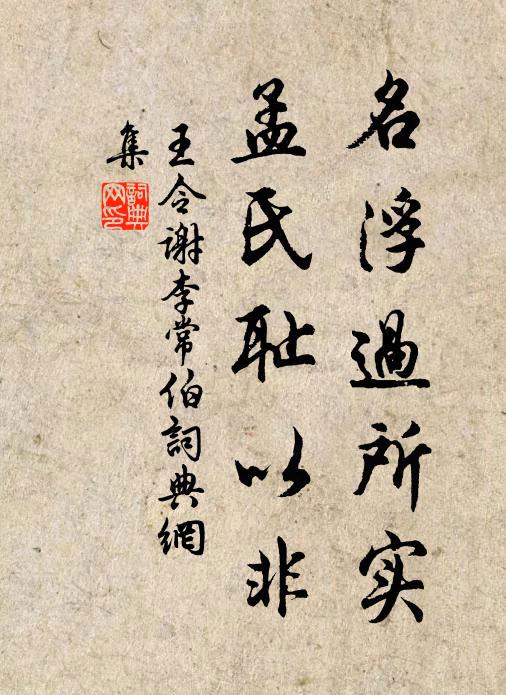 名浮過所实
孟氏耻以非
王令谢李常伯詞典網
集
詞典
网印